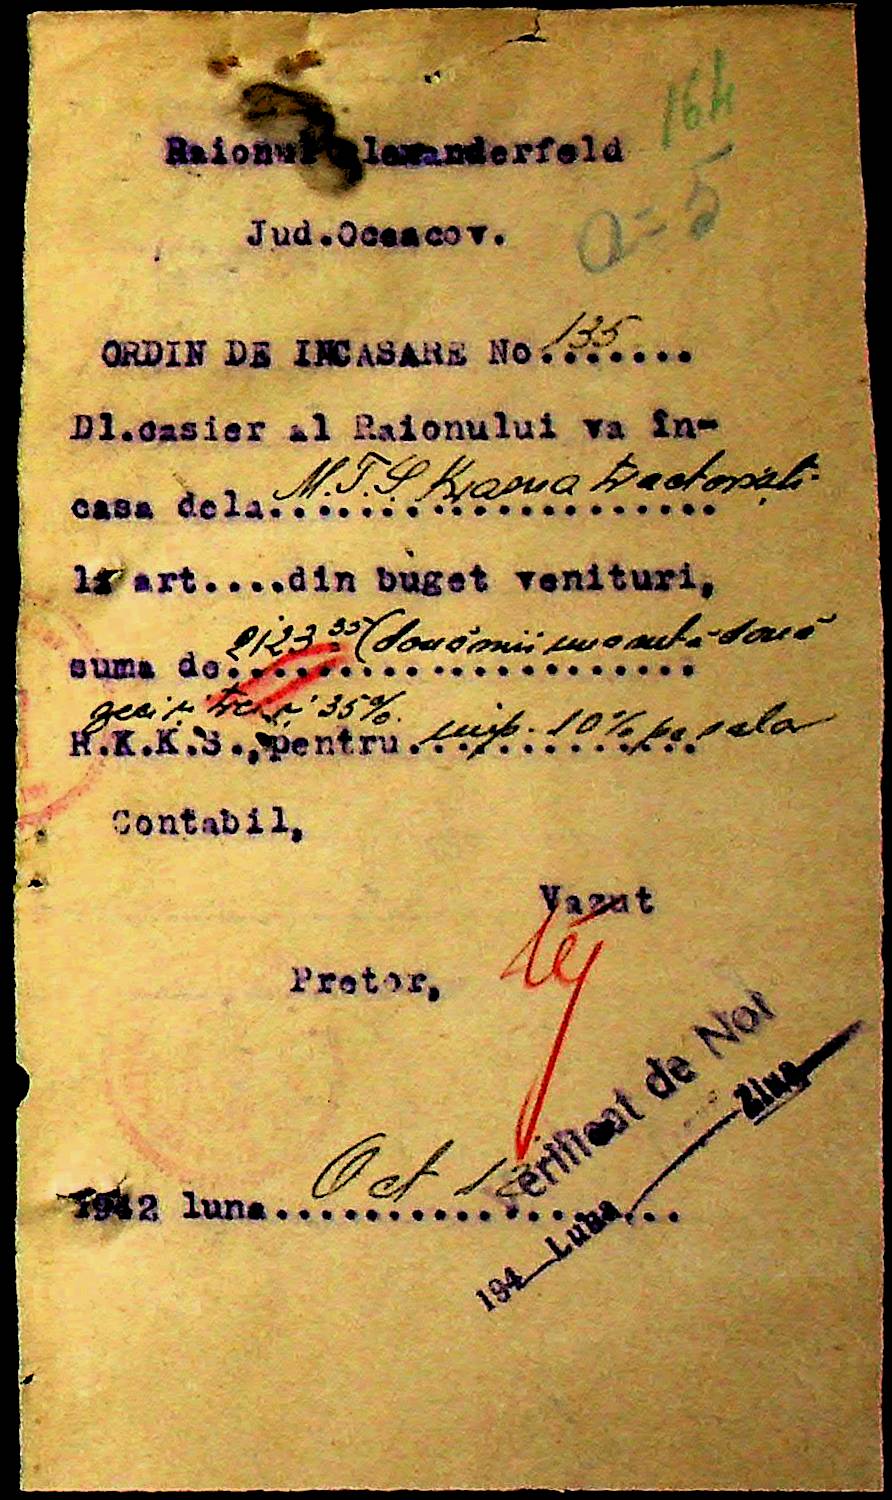 164
a = 5
Raionul Alexanderfeld
Jud.Oceacov.
ORDIN DE INCASARE No.135......
Dl.casier al Raionului va în-
casa dela. M.T.S. tractoriști
la art....din buget venituri,
suma de 2123 35 (două mii una sută două
zeci și trei 35%.
R.K.K.S., pentru. imp. 10% pe sala
Contabil,
Vazut
Pretor,
1942 luna Oct
erificat de Noi
194 Luna Ziua